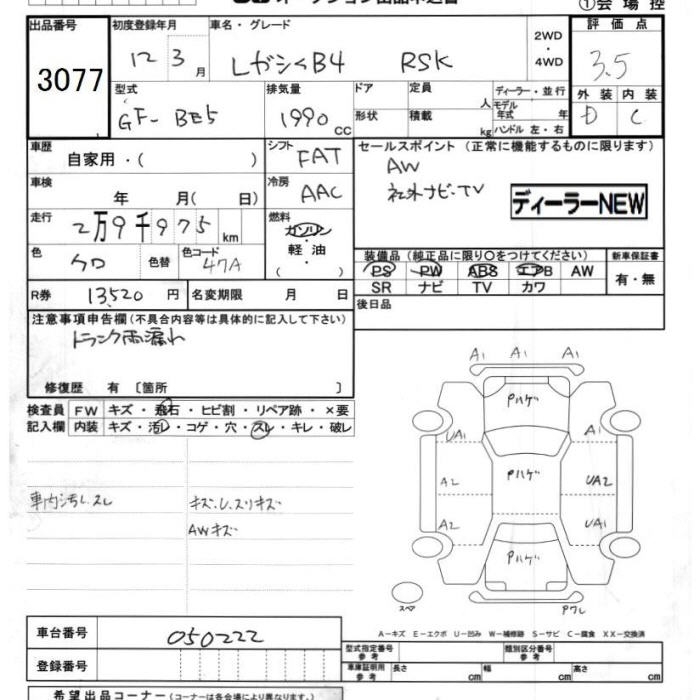 オークション出品申込書
①会場控
出品番号 3077
初度登録年月 12 3月
車名・グレード レガシィB4 RSK
2WD・4WD
評価点 3.5
外装 D 内装 C
型式 GF-BE5
排気量 1990 CC
ドア形状
定員 人
積載 kg
ディーラー・並行
モデル年式 年
ハンドル 左・右
車歴 自家用・( )
シフト FAT
セールスポイント (正常に機能するものに限ります)
AW
社外ナビ・TV
ディーラーNEW
車検 年 月( 日)
冷房 AAC
走行 2万9千975 km
燃料 ガソリン・軽油・( )
色 クロ 色替
色コード 47A
装備品 (純正品に限り○をつけてください)
PS PW ABS エアB AW
SR ナビ TV カワ
新車保証書 有・無
R券 13,520 円
名変期限 月 日
後日品
注意事項申告欄 (不具合内容等は具体的に記入して下さい)
トランク雨漏れ
修復歴 有 〔箇所 〕
検査員記入欄
FW キズ・飛石・ヒビ割・リペア跡・×要
内装 キズ・汚レ・コゲ・穴・スレ・キレ・破レ
車内汚レ、スレ
キズ、U、スリキズ
AWキズ
A1 A1 A1
Pハゲ
UA1 UA1
A2 Pハゲ UA2
A2 UA1
Pハゲ
スペア
Pワレ
A-キズ E-エクボ U-凹み W-補修跡 S-サビ C-腐食 XX-交換済
車台番号 050222
登録番号
型式指定番号 参考
類別区分番号 参考
車庫証明用 参考 長さ cm 幅 cm 高さ cm
希望出品コーナー (コーナーは各会場により異なります。)